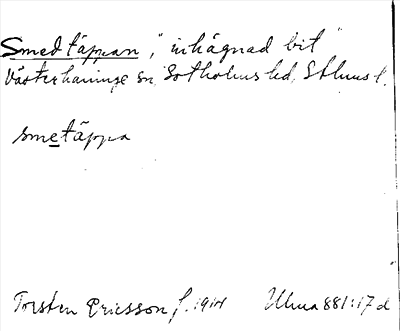 Smedtäppan, "inhägnad bit"
Västerhaninge sn, Sotholms hd, Sthlms l.
smetäppa
Torsten Ericsson f. 1914 Ulma 881:17 d